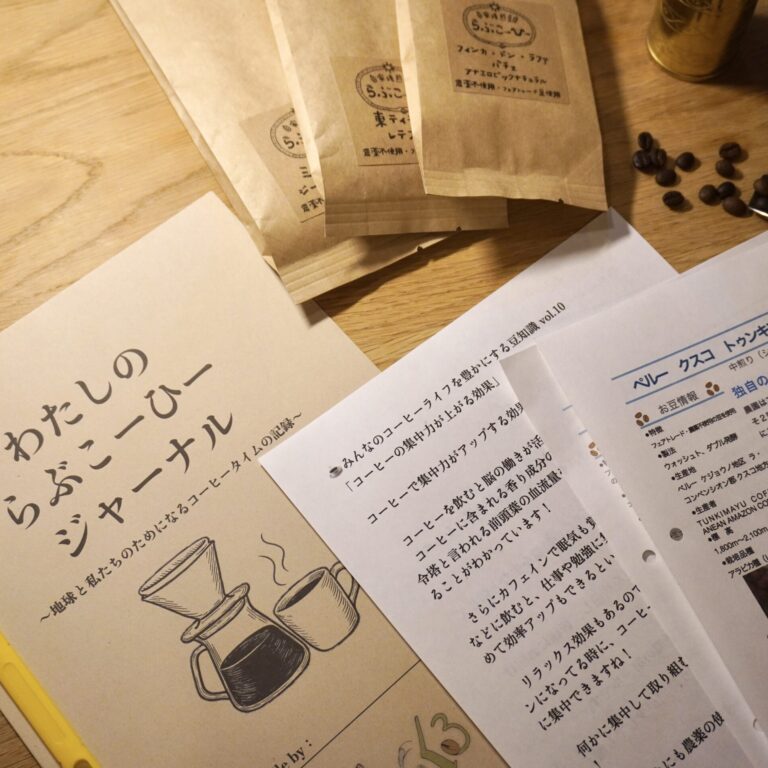 自家焙煎珈琲
らぶこーひー
フィンカ・デン・ラファ
パチェ
アナエロビックナチュラル
農薬不使用・フェアトレード豆使用
らぶこーひー
東ティ
レテ
農薬不使用・
農薬不
わたしの
らぶこーひー
ジャーナル
～地球と私たちのためになるコーヒータイムの記録～
de by :
みんなのコーヒーライフを豊かにする豆知識 vol.10
「コーヒーの集中力が上がる効果」
コーヒーで集中力がアップする効果
コーヒーを飲むと脳の働きが活
コーヒーに含まれる香り成分の
令塔と言われる前頭葉の血流量
ることがわかっています！
さらにカフェインで眠気も
などに飲むと、仕事や勉強に
めて効率アップもできるとい
リラックス効果もあるので
ンになってる時に、コーヒー
に集中できますね！
何かに集中して取り組む
にも農薬の使
ペルー クスコ トゥンキ
中煎り（シ
お豆情報
独自の
●特徴
フェアトレード・農薬不使用の豆を使用
●製法
ウォッシュト、ダブル発酵
●生産地
ペルー ケジョウノ地区 ラ・
コンベンシオン郡 クスコ地方
●生産者
TUNKIMAYU COF
ANEAN AMAZON CO
●標高
1,800m～2,100m
●栽培品種
アラビカ種
農園は
そ2,5